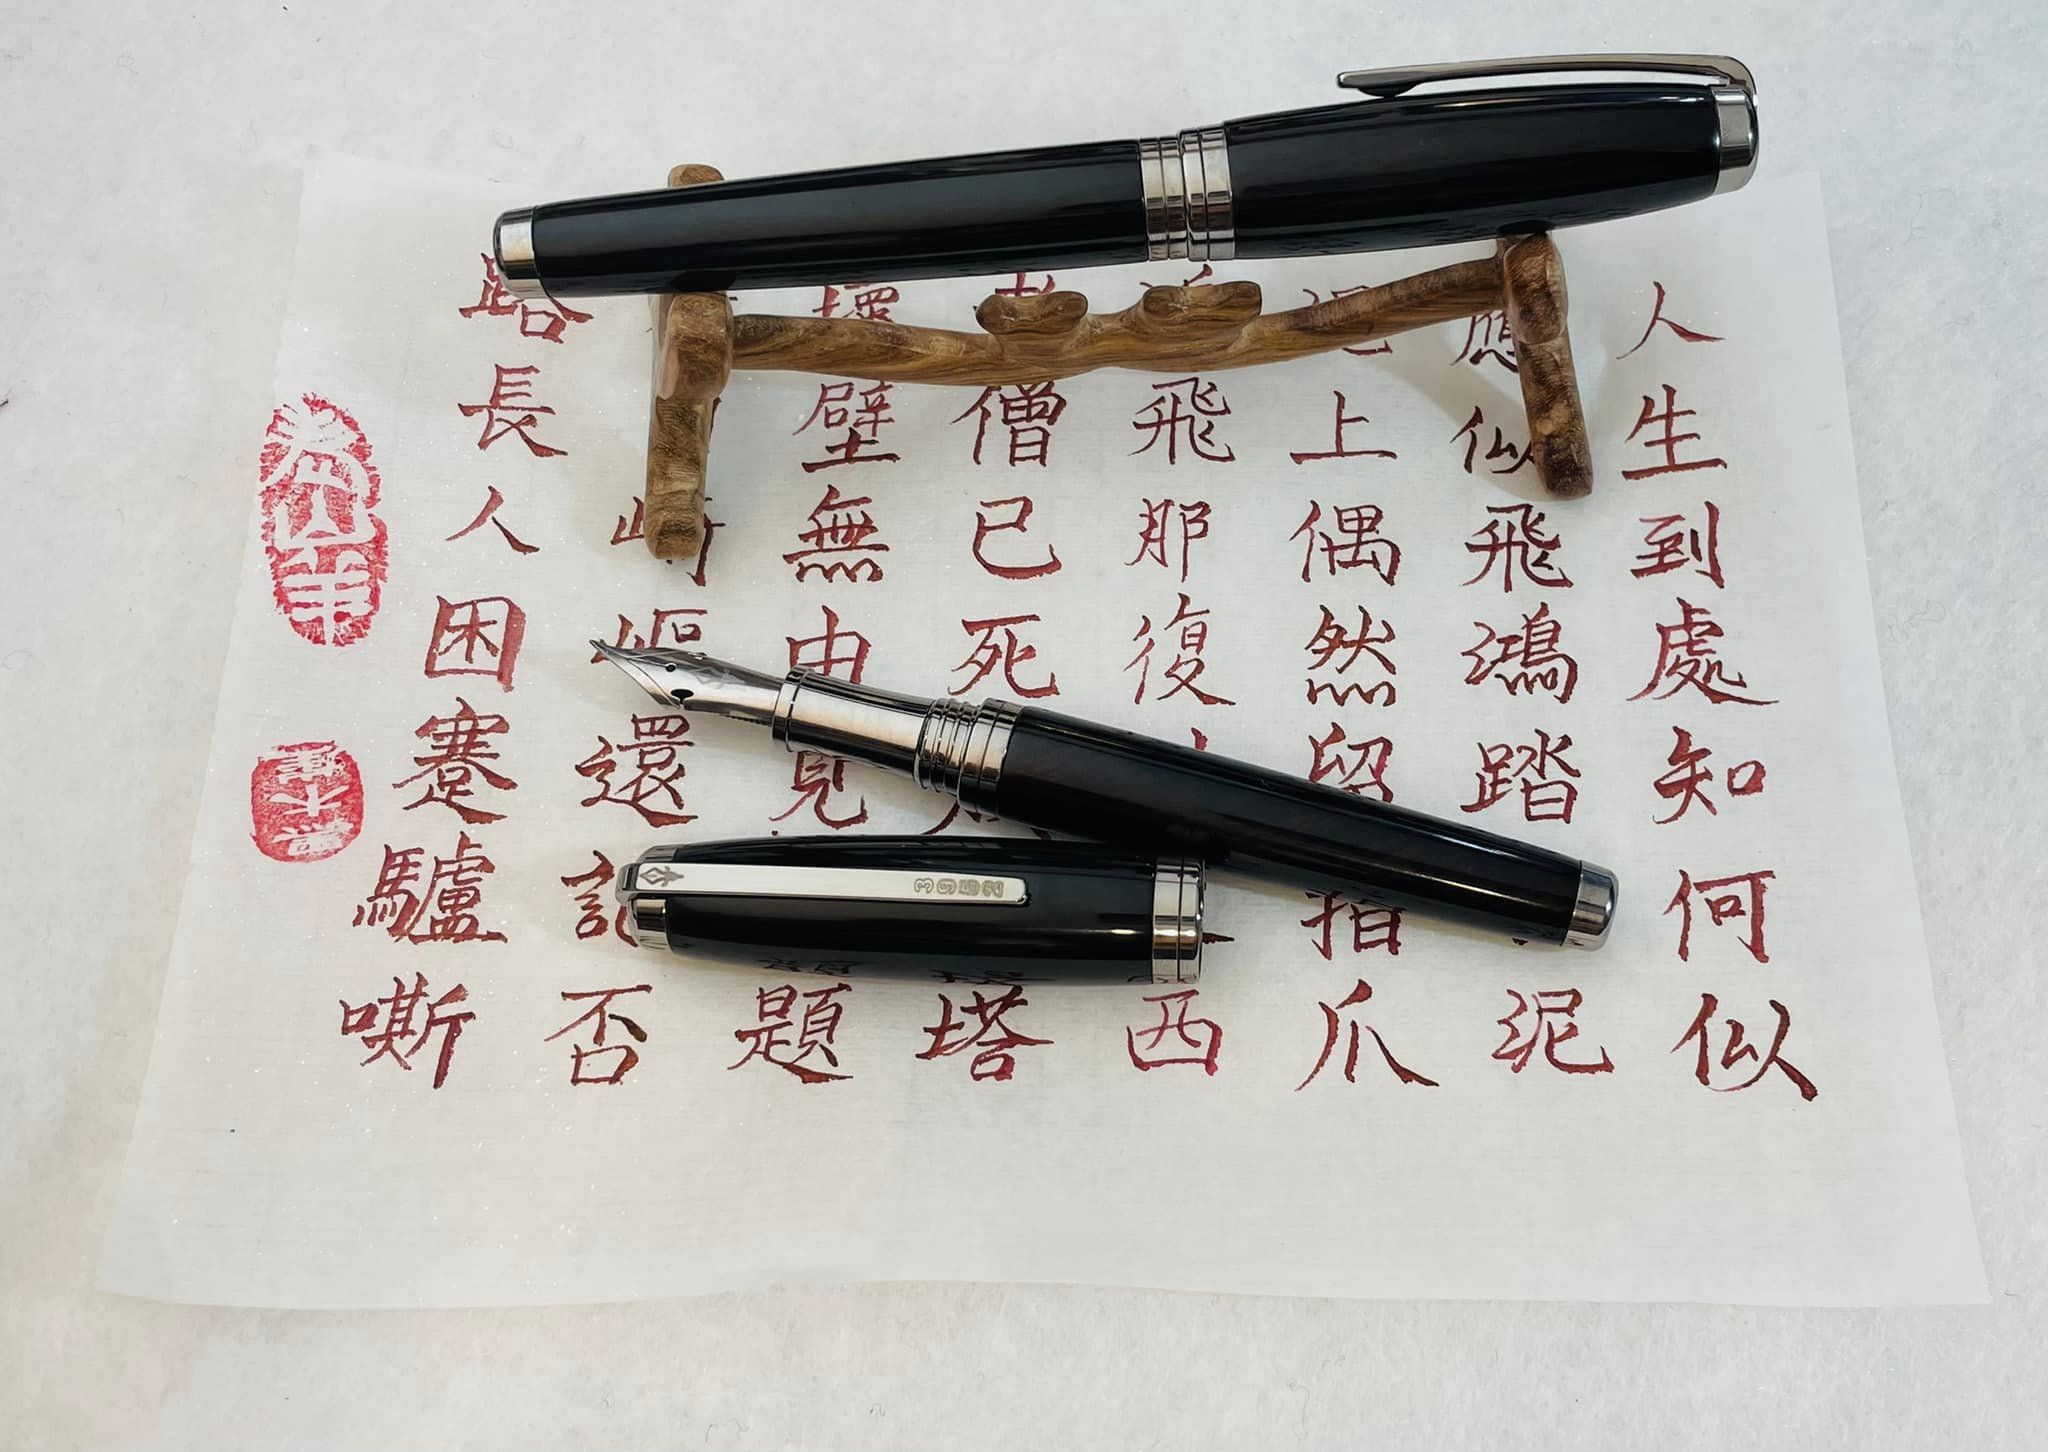 人生到處知何似
應似飛鴻踏泥
泥上偶然留指爪
飛那復西
僧已死塔
壞壁無由見題
崎嶇還記否
路長人困蹇驢嘶